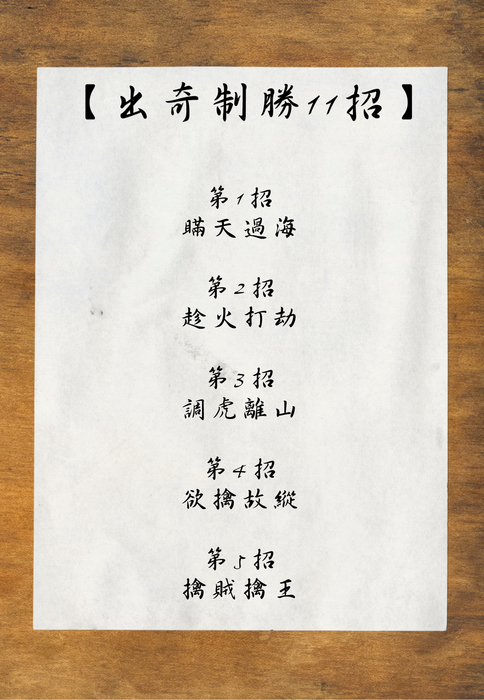 【出奇制勝11招】
第1招
瞞天過海
第2招
趁火打劫
第3招
調虎離山
第4招
欲擒故縱
第5招
擒賊擒王